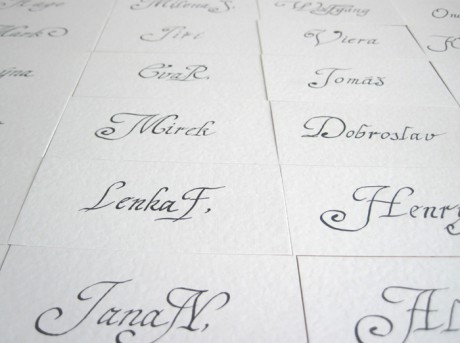 Milena S. Wolfgang
Jiří Viera
Eva R. Tomáš
Mirek Dobroslav
Lenka F. Henry
Jana N.